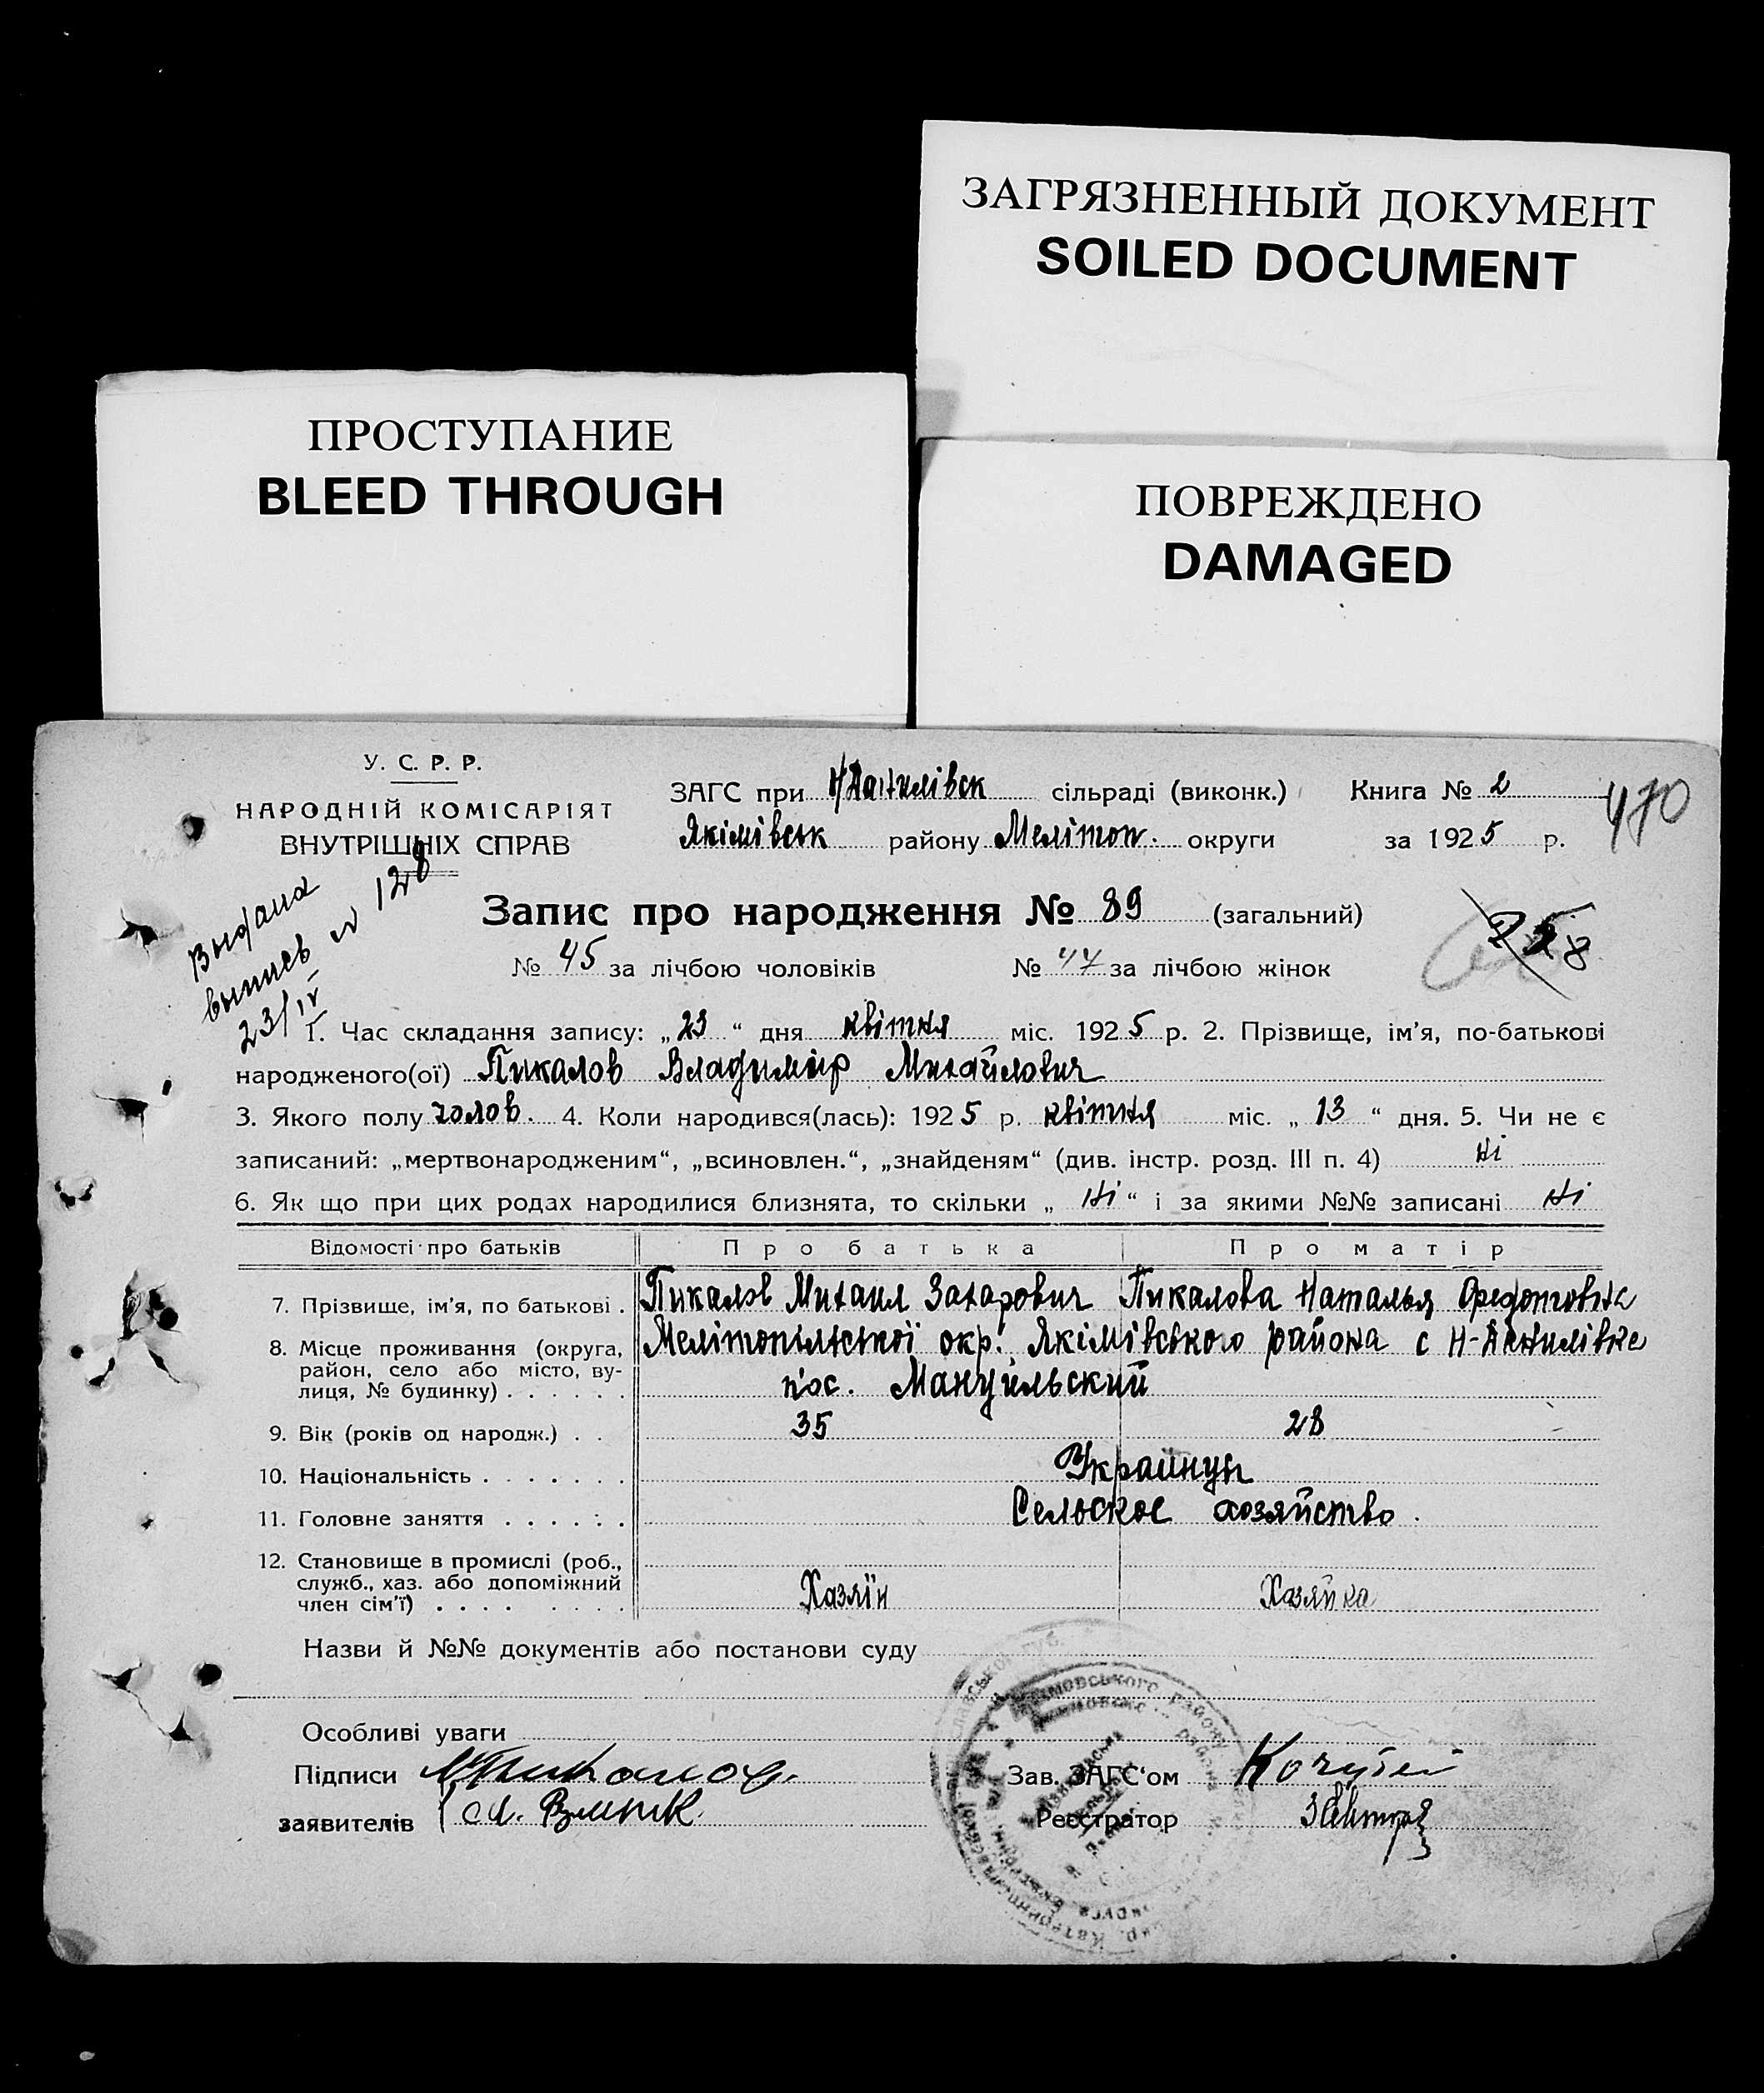 ЗАГРЯЗНЕННЫЙ ДОКУМЕНТ
SOILED DOCUMENT
ПРОСТУПАНИЕ
BLEED THROUGH
ПОВРЕЖДЕНО
DAMAGED
У. С. Р. Р.
НАРОДНІЙ КОМІСАРІЯТ
ВНУТРІШНІХ СПРАВ
ЗАГС при Н/Данилівск сільраді (виконк.) Книга № 2
Якімівськ району Мелітоп. округи за 1925 р.
470
Выдана
выпись № 128
23/IV
Запис про народження № 89 (загальний)
258
№ 45 за лічбою чоловіків № 44 за лічбою жінок
1. Час складання запису: „23“ дня квітня міс. 1925 р. 2. Прізвище, ім’я, по-батькові
народженого(ої) Пикалов Владимир Михайлович
3. Якого полу чолов. 4. Коли народився(лась): 1925 р. квітня міс. „13“ дня. 5. Чи не є
записаний: „мертвонародженим“, „всиновлен.“, „знайденям“ (див. інстр. розд. III п. 4) Ні
6. Як що при цих родах народилися близнята, то скільки „Ні“ і за якими №№ записані Ні
Відомості про батьків Про батька Про матір
7. Прізвище, ім’я, по батькові . Пикалов Михаил Захарович Пикалова Наталья Федотовна
8. Місце проживання (округа, район, село або місто, вулиця, № будинку) . . . . . . Мелітопільської окр. Якімівського района с Н-Данилівке
пос. Мануильский
9. Вік (років од народж.) . . 35 28
10. Національність . . . . . . . Украйнцы
11. Головне заняття . . . . . . Сельское хозяйство.
12. Становище в промислі (роб., служб., хаз. або допоміжний член сім’ї) . . . . Хазяїн Хазяйка
Назви й №№ документів або постанови суду
Особливі уваги
Підписи М Пикалов.
заявителів
Зав. ЗАГС‘ом Кочубей
Реєстратор